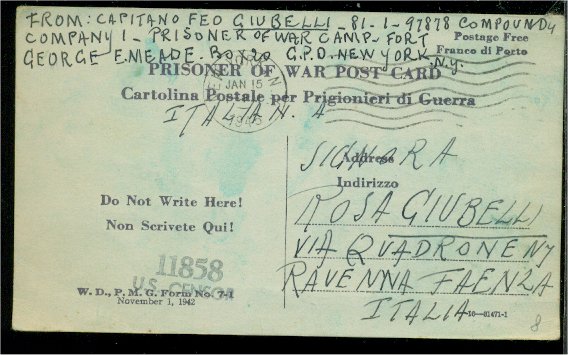 FROM: CAPITANO FEO GIUBELLI - 81-1-97878 COMPOUND 4
COMPANY 1 - PRISONER OF WAR CAMP - FORT
Postage Free
Franco di Porto
GEORGE E. MEADE. BOX 20 G.P.O. NEW YORK. N.Y.
PRISONER OF WAR POST CARD
JAN 15
Cartolina Postale per Prigionieri di Guerra
ITALIAN.
SIGNORA
Address
Indirizzo
Do Not Write Here!
Non Scrivete Qui!
ROSA GIUBELLI
VIA QUADRONE N7
RAVENNA FAENZA
ITALIA
11858
U.S. CENSOR
W. D., P. M. G. Form No. 7-1
November 1, 1942
16-31471-1
8